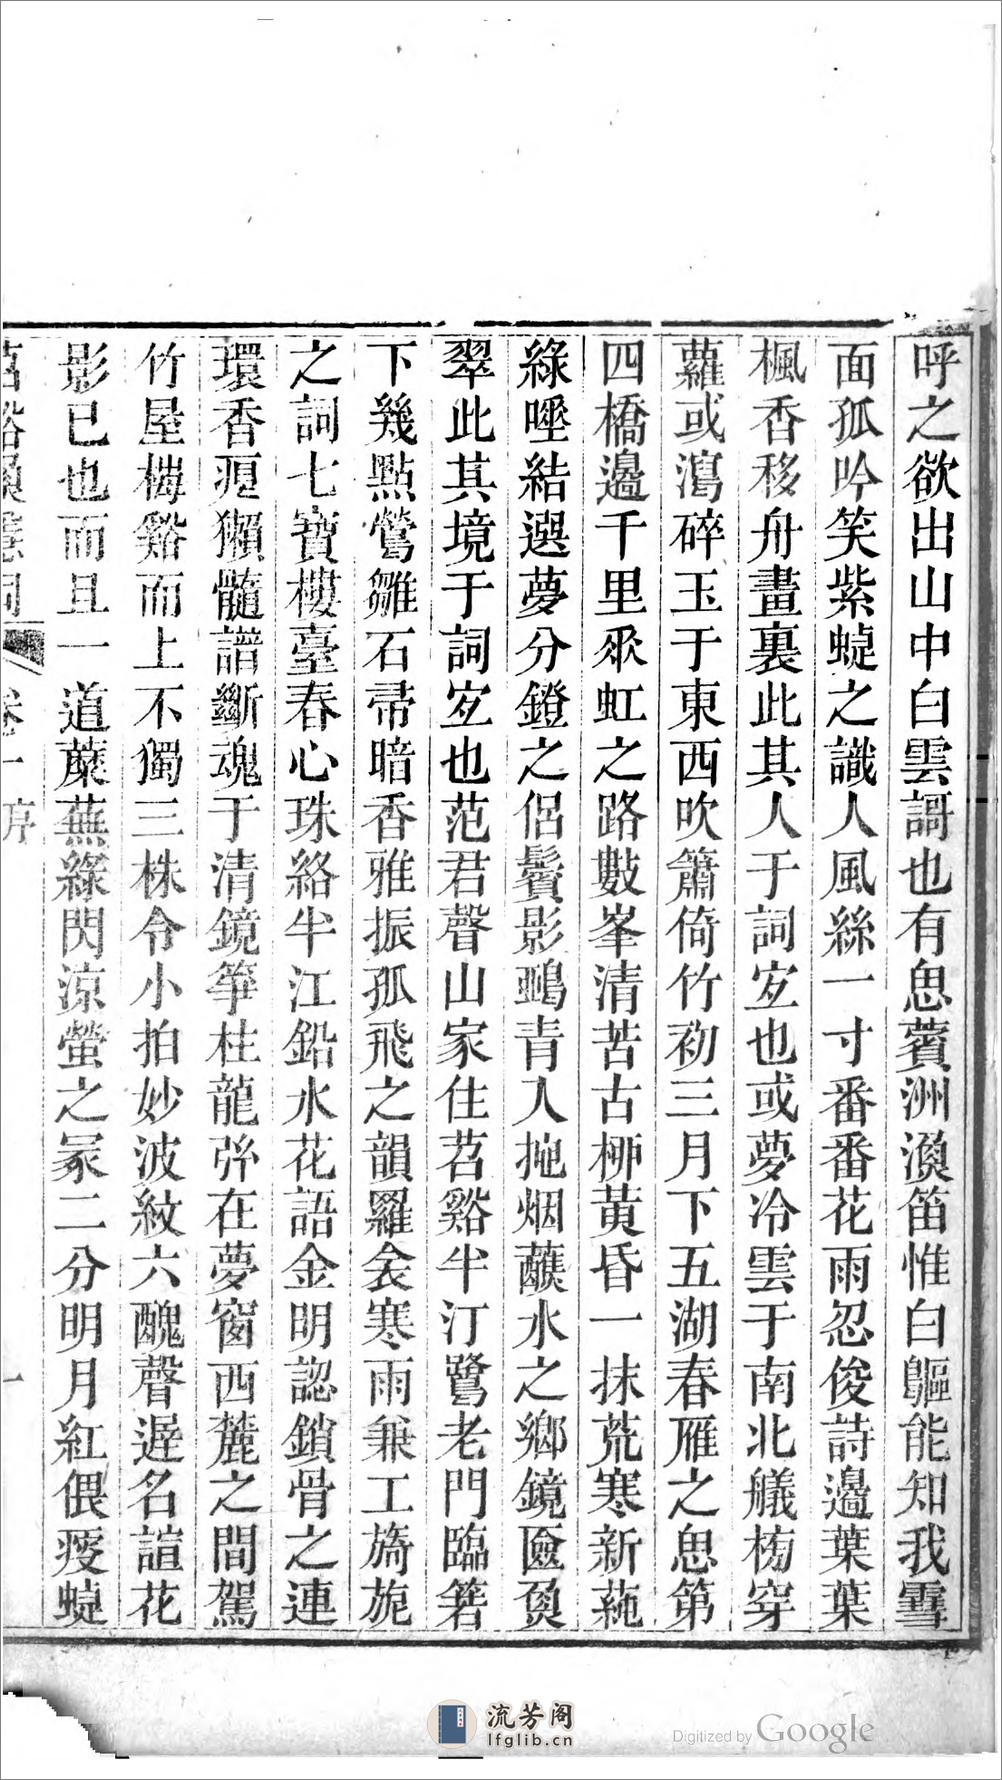 呼之欲出山中白雲謌也有思薲洲漁笛惟白鷗能知我霅
面孤吟笑紫蜨之識人風絲一寸番番花雨忍俊詩邊葉葉
楓香移舟畫裏此其人于詞宐也或夢冷雲于南北艤栯穿
蘿或瀉碎玉于東西吹簫倚竹初三月下五湖春雁之思第
四橋邊千里𠂢虹之路數峯清苦古桺黃昏一抹荒寒新蒓
綠唑結選夢分鐙之侶鬢影鵶青人拖烟蘸水之鄉鏡匳奩
翠此其境于詞宐也范君聲山家住苕谿半汀鷺老門臨箬
下幾點鶯雛石帚暗香雅振孤飛之韻羅衾寒雨兼工旖旎
之詞七寶樓臺春心珠絡半江鉛水花語金明認鎖骨之連
環香瘢獺髓譜斷魂于清鏡箏柱龍斿在夢窗西麓之間駕
竹屋梅谿而上不獨三株令小拍妙波紋六醜聲遲名諠花
影已也而且一道蘼蕪綠閃涼螢之冢二分明月紅偎痠蜨
苕谿漁隱詞 卷一序 一